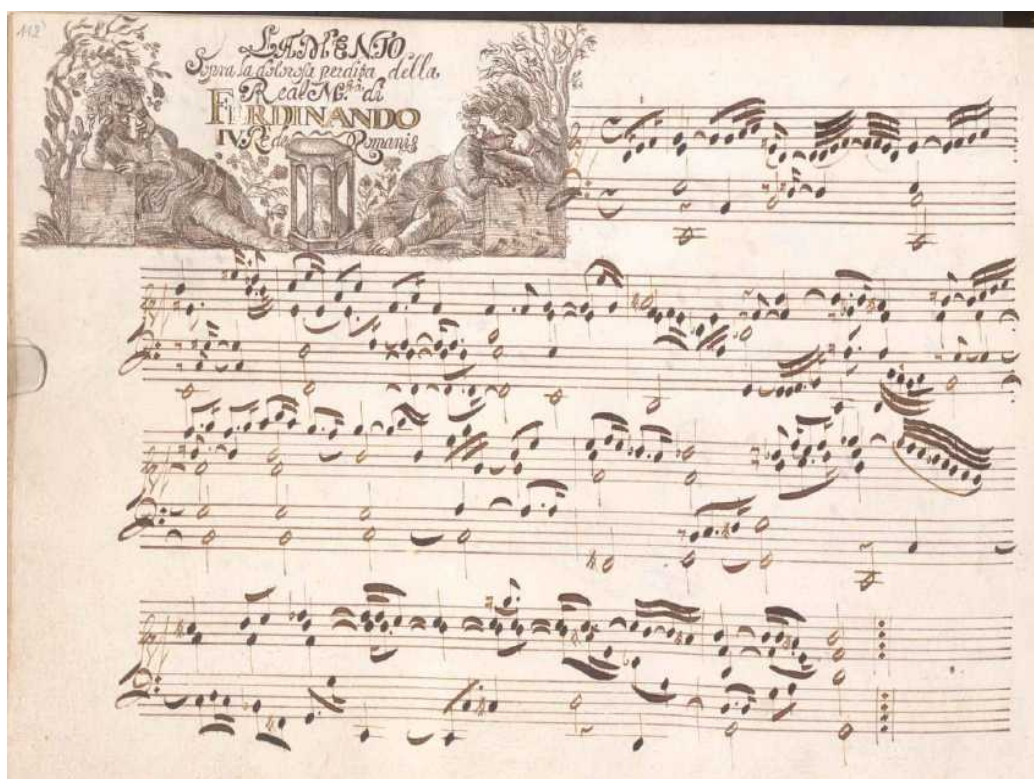 112
LAMENTO
Sopra la dolorosa perdita della
Real M.stà di
FERDINANDO
IV. Rè de Romani &